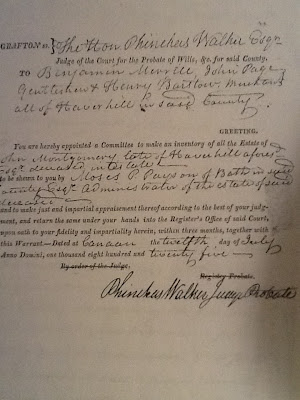 GRAFTON ss. } The Hon. Phinehas Walker Esqr
Judge of the Court for the Probate of Wills, &c. for said County.
TO Benjamin Merrill, John Page
Gentlemen & Henry Barstow
all of Haverhill in said County.
GREETING.
You are hereby appointed a Committee to make an inventory of all the Estate of
John Montgomery late of Haverhill afores
Esqr deceased intestate
to be shewn to you by Moses P Payson of Bath in said
County Esqr Administrator of the estate of said
deceased
and to make just and impartial appraisement thereof according to the best of your judg-
ment, and return the same under your hands into the Register's Office of said Court,
upon oath to your fidelity and impartiality herein, within three months, together with
this Warrant.—Dated at Canaan the twelfth day of July
Anno Domini, one thousand eight hundred and twenty five
By order of the Judge,
Register Probate.
Phinehas Walker Judge Probate